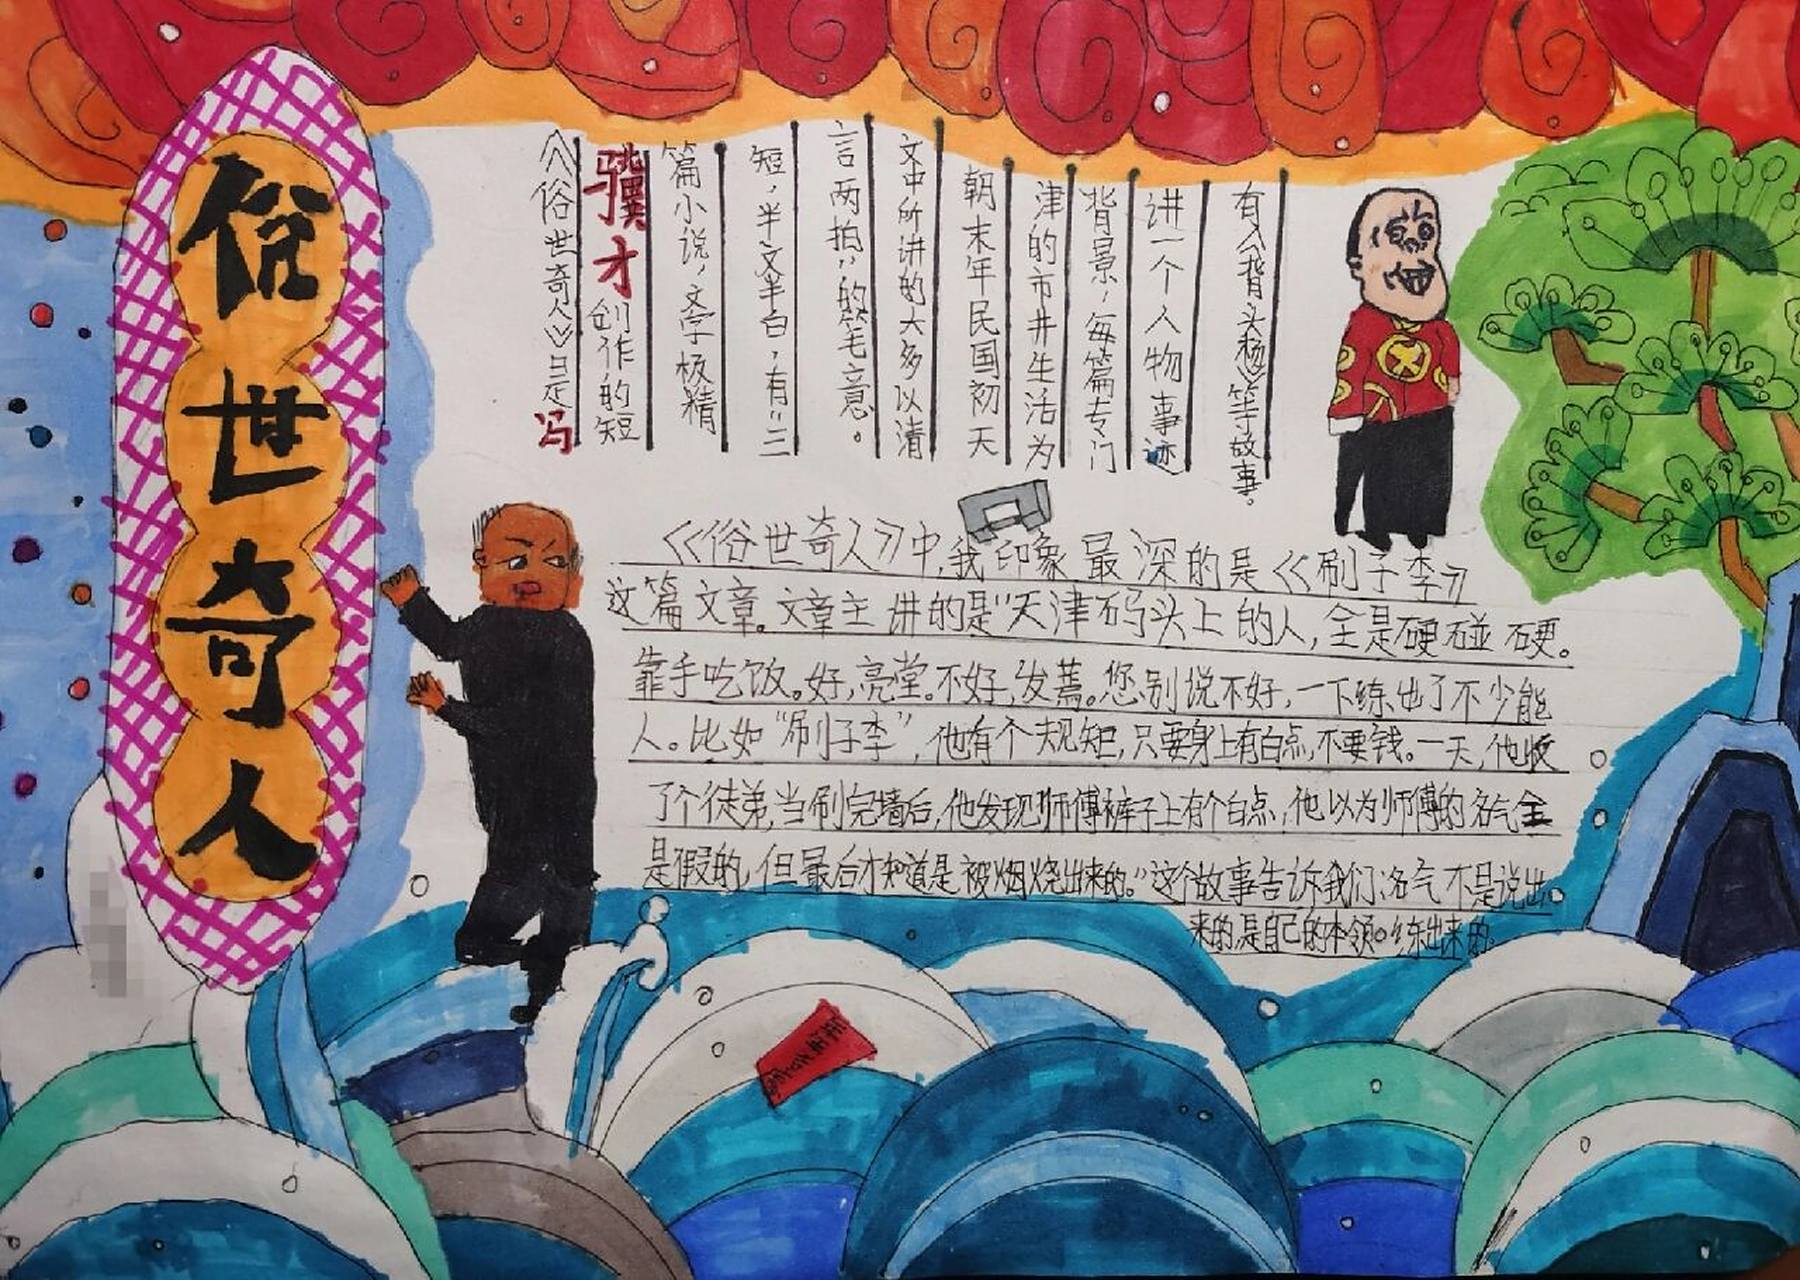 俗世奇人
《俗世奇人》是冯
骥才创作的短
篇小说,文字极精
短,半文半白,有"三
言两拍"的笔意。
文中所讲的大多以清
朝末年民国初天
津的市井生活为
背景,每篇专门
讲一个人物事迹
有《背头杨》等故事。
《俗世奇人》中,我印象最深的是《刷子李》
这篇文章。文章主讲的是"天津码头上的人,全是硬碰硬。
靠手吃饭。好,亮堂。不好,发蔫。您别说不好,一下练出了不少能
人。比如"刷子李",他有个规矩,只要身上有白点,不要钱。一天,他收
了个徒弟,当刷完墙后,他发现师傅裤子上有个白点,他以为师傅的名气全
是假的,但最后才知道是被烟烧出来的。"这个故事告诉我们:名气不是说出
来的,是自己的本领。练出来的。